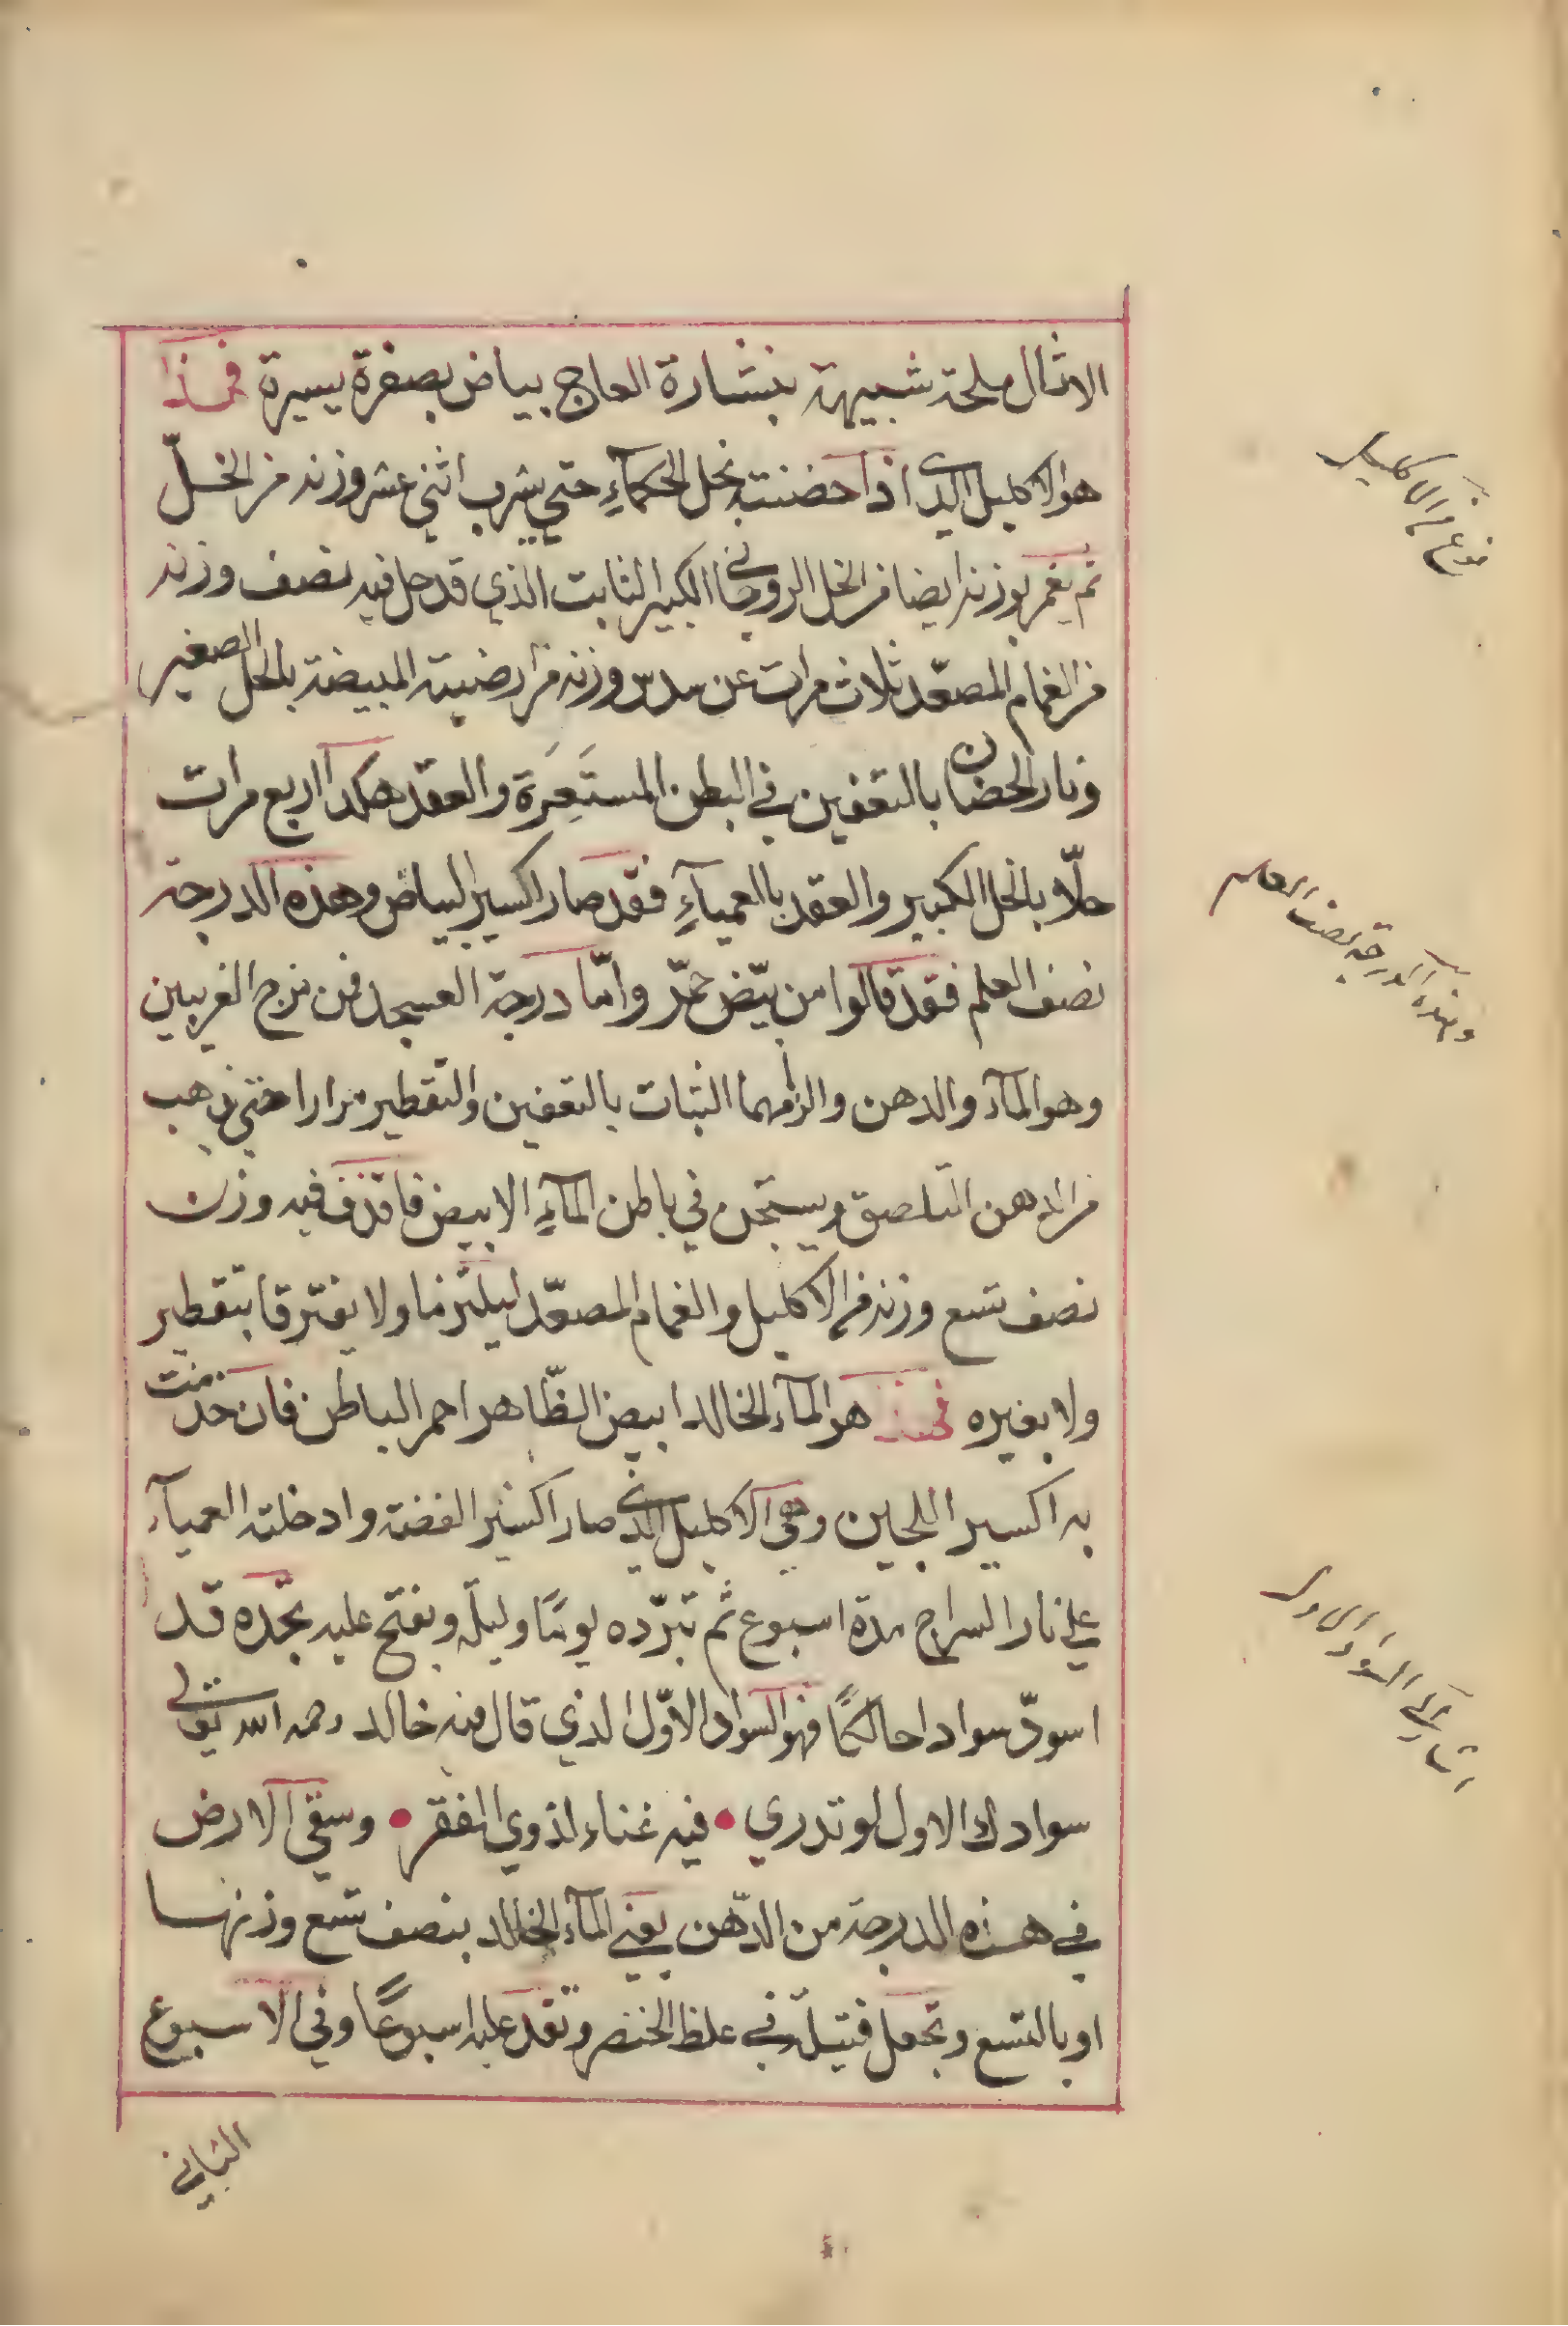 الاثال ملحة شبيهة بنشارة العاج بياض بصفرة يسيرة فهذا
هو الاكليل الذي اذا حضنته بخل الحكمآءِ حتي يشرب اثني عشر وزنه من الخلّ
ثم يغمر بوزنه ايضا من الخل الروحاني الكبير الثابت الذي قد حل فيه نصف وزنه
من الغمام المصعّد ثلاث مرات عن سدس وزنه من ارضيته المبيضة بالخل الصغير
ونار الحضان بالتعفين في البطن المستَعِرَة والعقد هكذا اربع مرات
حلّا بالخل الكبير والعقد بالعميآءِ فقد صار اكسير البياض وهذه الدرجة
نصف العلم فقد قالوا من بيّض حمّر وامّا درجة العسجد فمن مزج الغريبين
وهو المآء والدهن والزمهما الثبات بالتعفين والتقطير مرارا حتي يذهب
من الدهن التلصق ويستجن في باطن المآءِ الابيض فاقذف فيه وزن
نصف تسع وزنه من الاكليل والغمام المصعّد ليلتزما ولا يفترقا بتقطير
ولا بغيره فهذا هو المآء الخالد ابيض الظّاهر احمر الباطن فان خدمت
به اكسير اللجين وهي الاكليل الذي صار اكسير الفضة وادخلته العميآء
علي نار السراج مدة اسبوع ثم تبرّده يومًا وليلة وبفتح عليه تجده قد
اسودّ سوادا حالكًا فهو السواد الاوّل الذي قال فيه خالد رحمه الله تعالى
سوادك الاول لو تدري • فيه غناء لذوي الفقر • وسقي الارض
في هذه الدرجة من الدّهن يعني المآء الخالد بنصف تسع وزنها
او بالتسع وتجعل فتيلة في غلظ الخنصر وتقد عليه اسبوعًا وفي الاسبوع
الثاني
وهذه الدرجة نصف العلم
السواد الاول